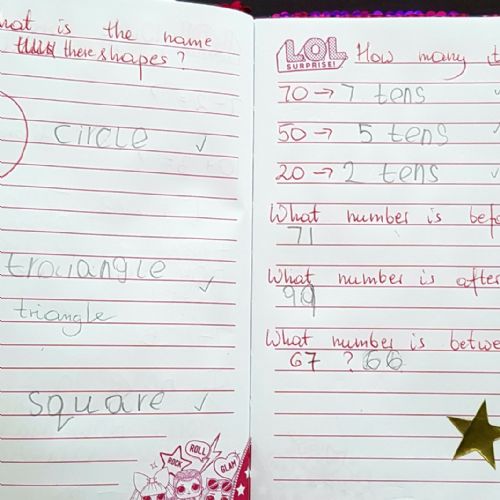 What is the name
there shapes?
circle ✓
trouangle ✓
triangle
square ✓
ROCK
ROLL
GLAM
LOL
SURPRISE!
How many t
70 → 7 tens ✓
50 → 5 tens ✓
20 → 2 tens ✓
What number is befo
71
What number is after
99
What number is betwe
67 ? 66